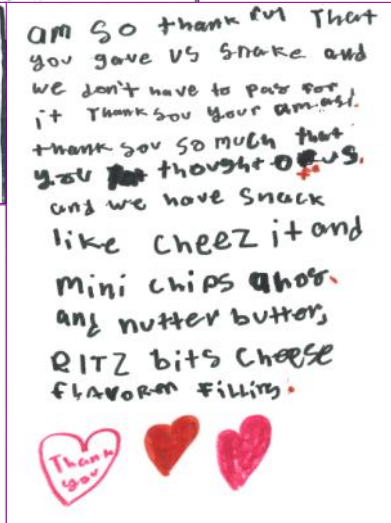 am so thankful That
you gave us snake and
we don't have to pay for
it Thank you your amasi.
thank you so much that
you thought of us.
and we have snack
like cheez it and
mini chips ahoy.
and nutter butter,
RITZ bits cheese
FLAVOREN FILLING.
Thank
you